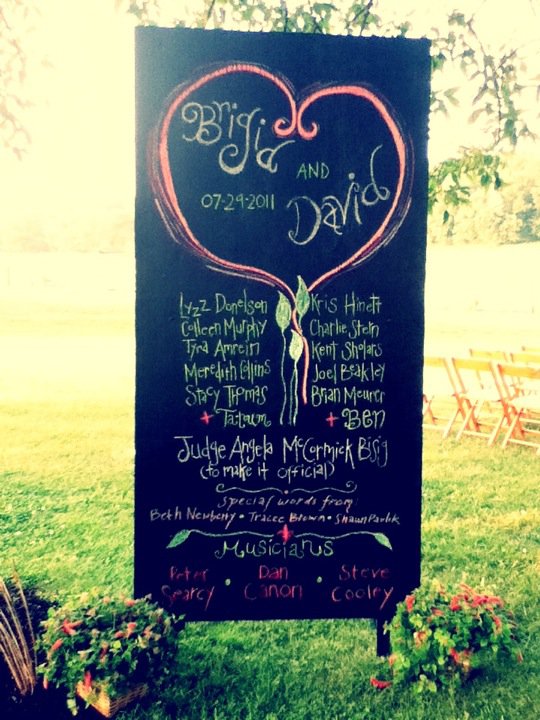 Brigid
AND
07-29-2011
David
Lyzz Donelson
Colleen Murphy
Tyra Amrein
Meredith Collins
Stacy Thomas
+ Tatum
Kris Hinott
Charlie Stein
Kent Sholars
Joel Beakley
Brian Meurer
+ Ben
Judge Angela McCormick Bisig
(to make it official)
Special words from:
Beth Newberry • Tracee Brown • Shawn
Musicians
Peter Searcy • Dan Canon • Steve Cooley